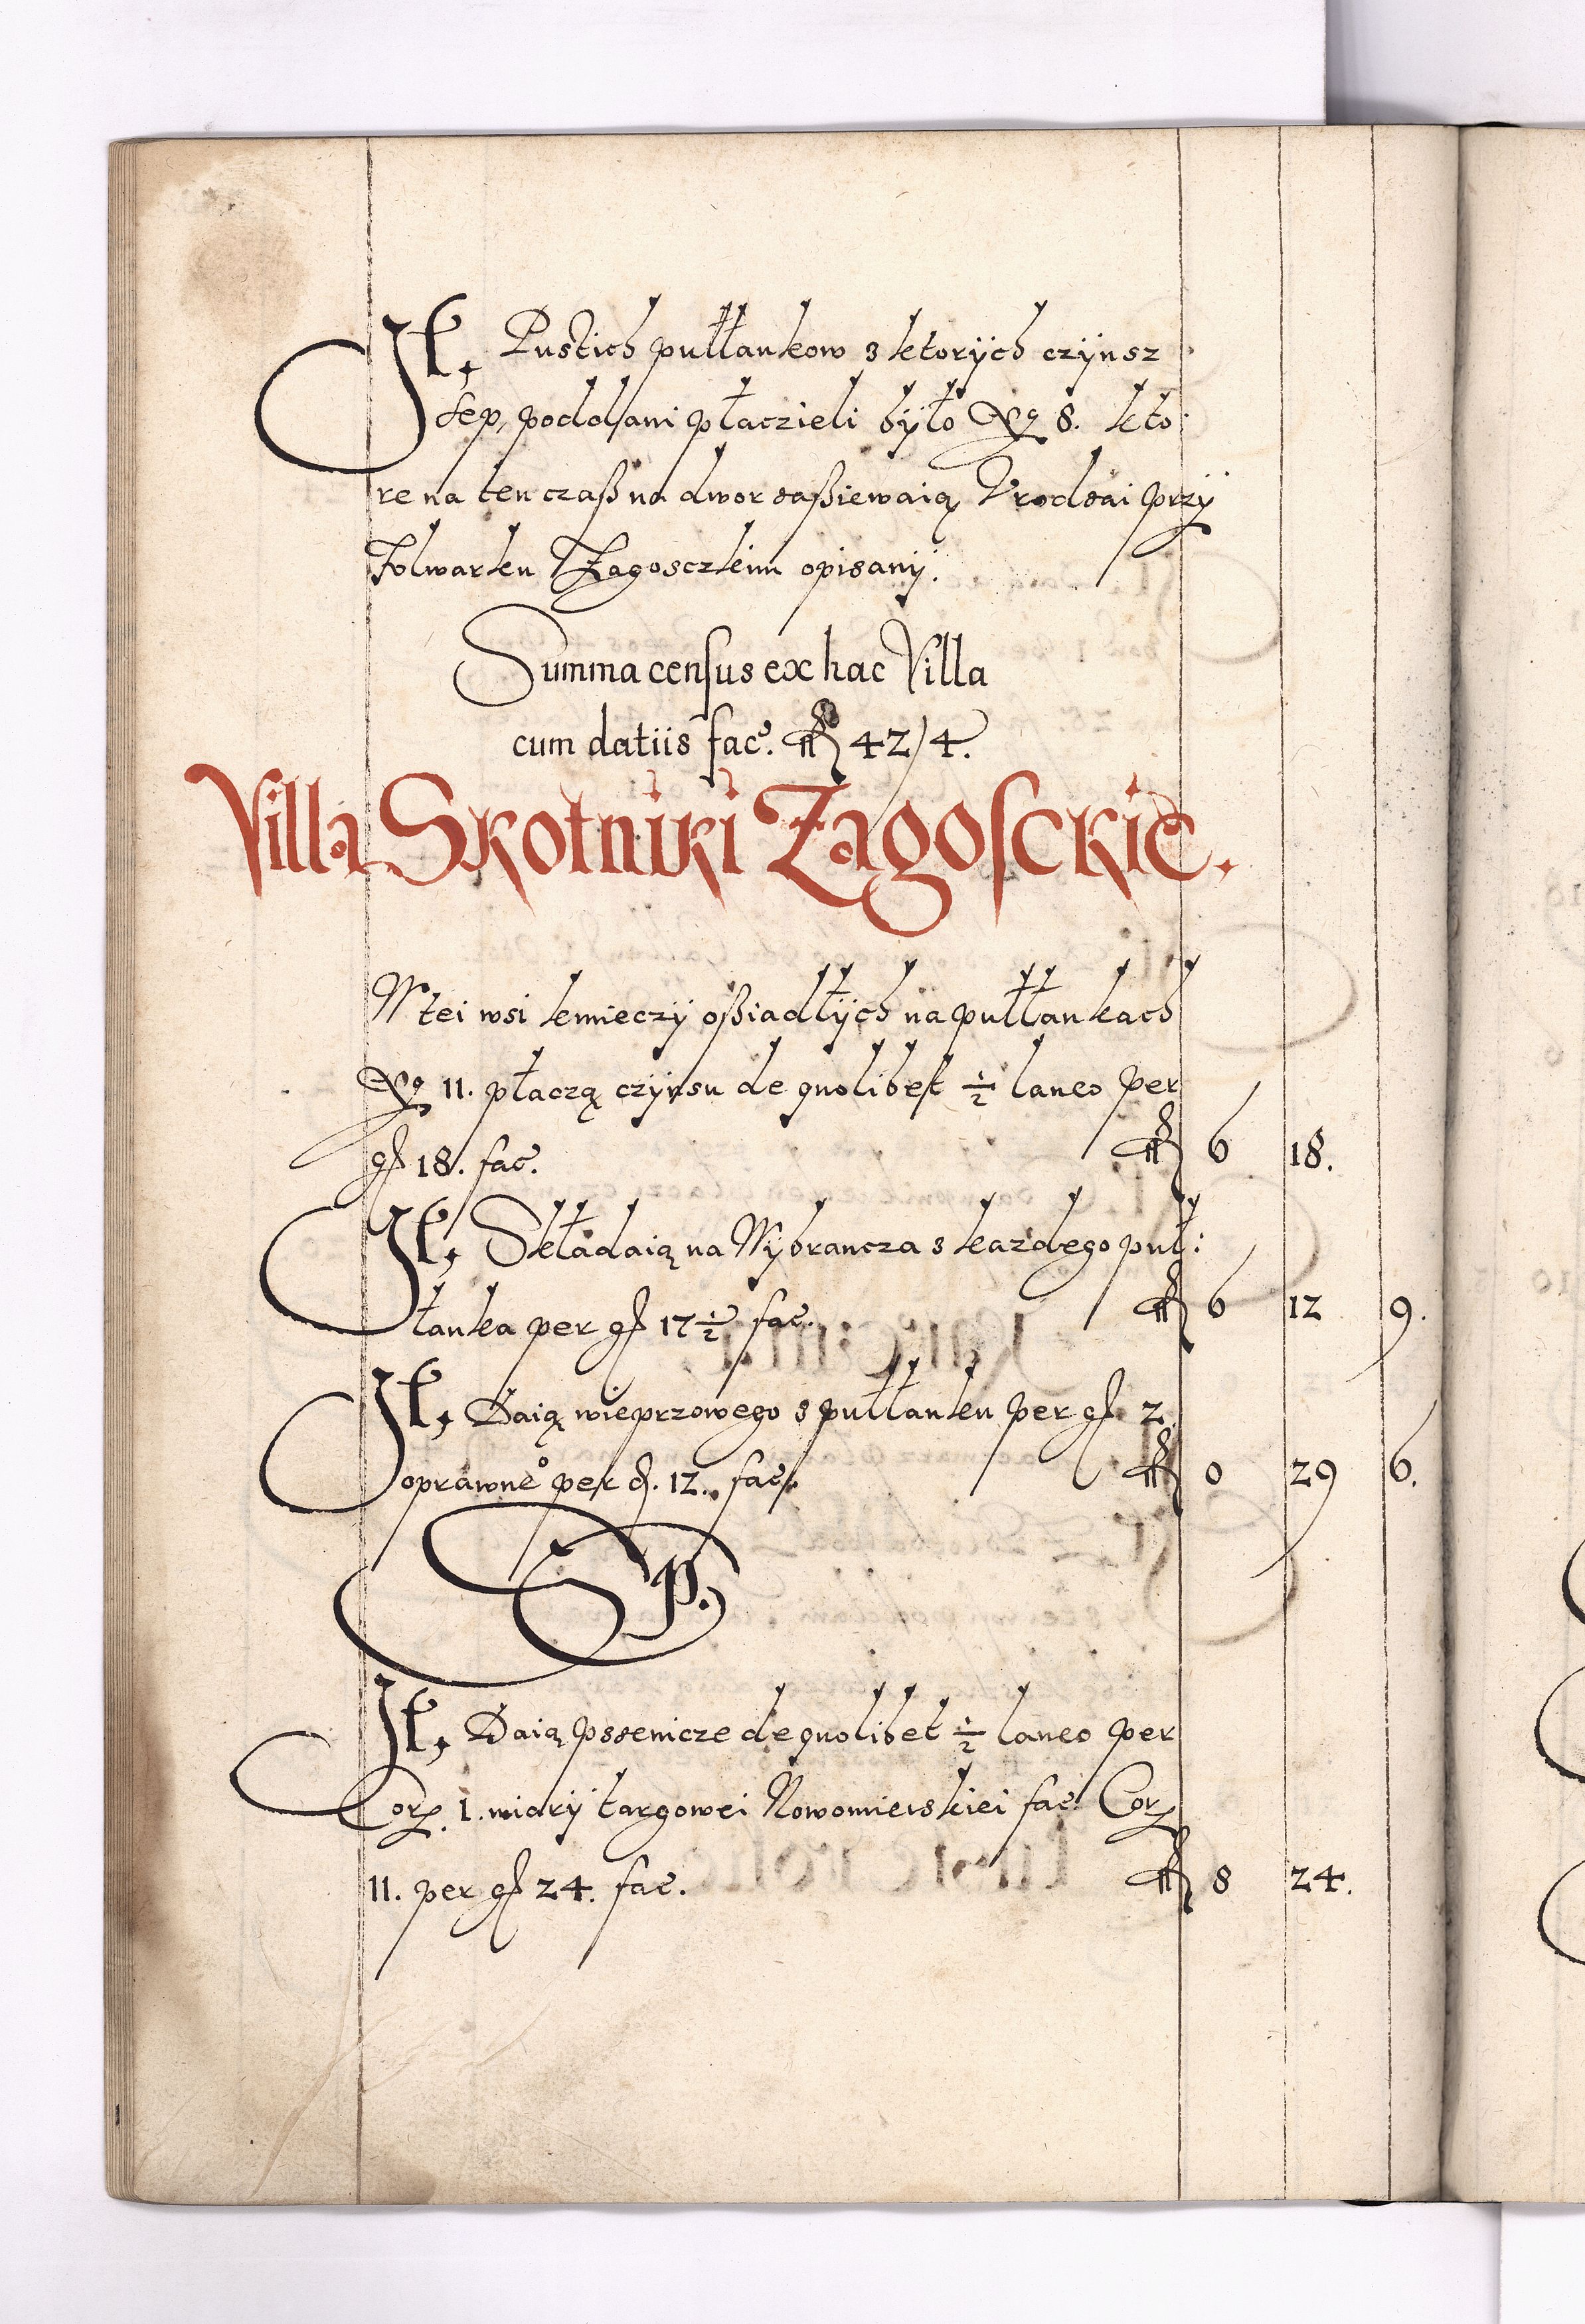 It, Pustich pułłankow z ktorÿch czÿnsz
sep, poddani płaczieli bÿło Nº 8. kto:
re na ten czaß na dwor zaßiewaią Vrodzai przÿ
Folwarku Zagosczkim opisanÿ.
Summa census ex hac Villa
cum datiis fac. fl 42/4.
Villa Skotniki Zagosckie.
W tei wsi kmieczÿ oßiadłÿch na pułłankach
Nº 11. płaczą czÿnsu de quolibet ½ laneo per
gſ 18. fac. fl 6 18.
It, Składaią na Wÿbrancza z kazdego puł:
łanka per gſ 17½ fac. fl 6 12 9.
It, Daią wieprzowego z pułłanku per gſ 2.
oprawneº per d. 12. fac. fl 0 29 6.
SP.
It, Daią pszenicze de quolibet ½ laneo per
Cor. 1. miarÿ targowei Nowomieiskiei fac. Cor
11. per gſ 24. fac. fl 8 24.